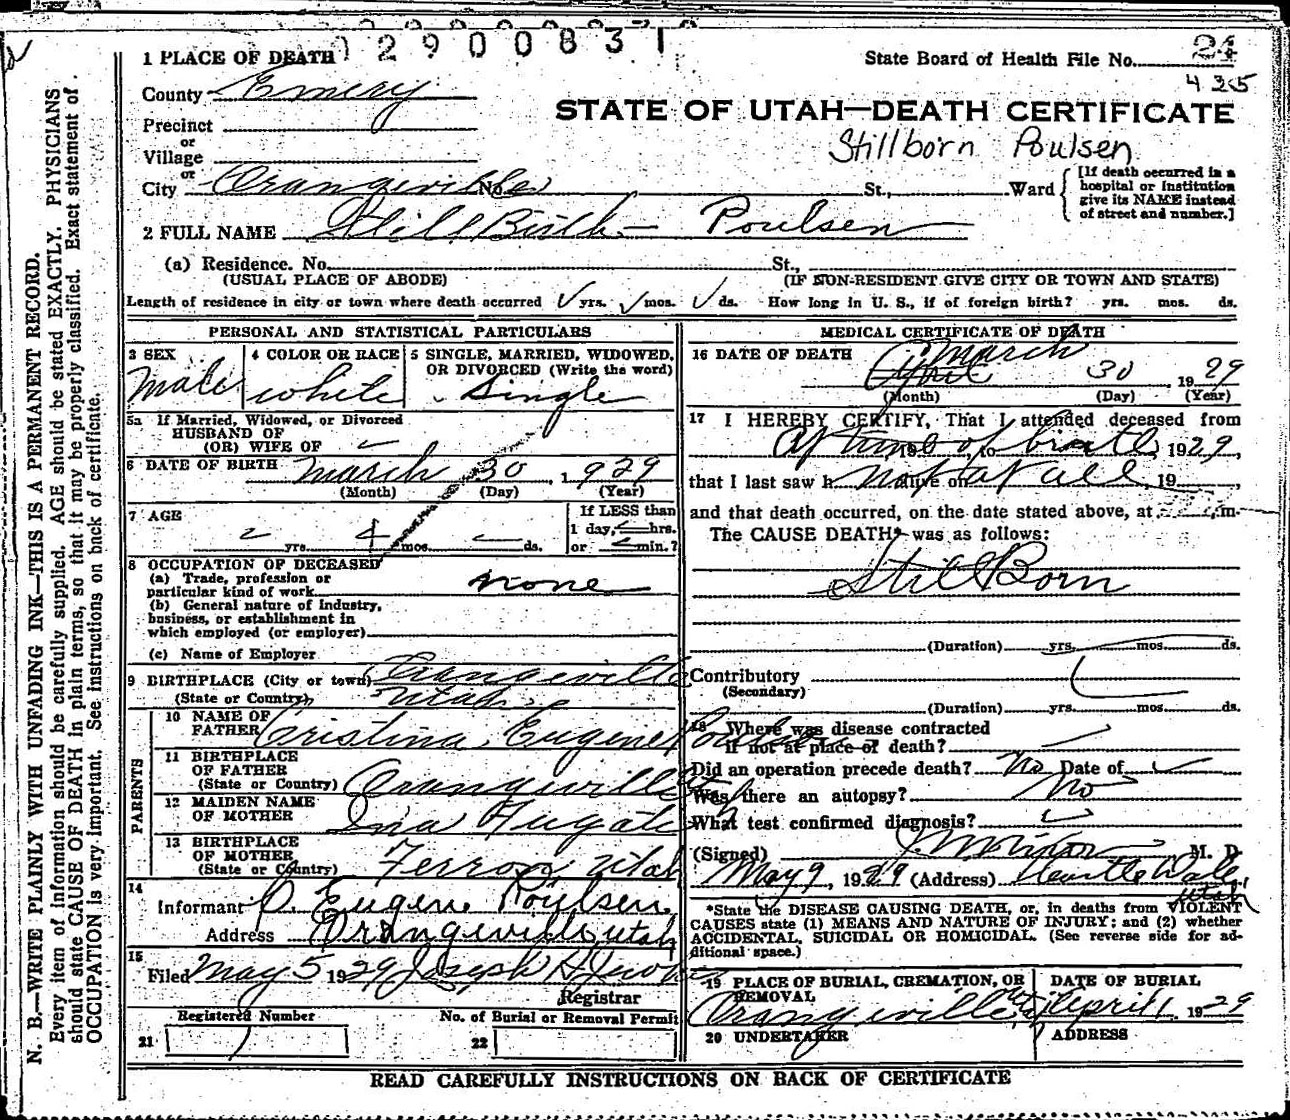 N. B.—WRITE PLAINLY WITH UNFADING INK—THIS IS A PERMANENT RECORD.
Every item of information should be carefully supplied. AGE should be stated EXACTLY. PHYSICIANS
should state CAUSE OF DEATH in plain terms, so that it may be properly classified. Exact statement of
OCCUPATION is very important. See instructions on back of certificate.
2900831
1 PLACE OF DEATH
State Board of Health File No. 24
435
County Emery
STATE OF UTAH—DEATH CERTIFICATE
Precinct
or
Village
Stillborn Poulsen
or
City Orangeville No. St., Ward
[If death occurred in a
hospital or institution
give its NAME instead
of street and number.]
2 FULL NAME Still Birth - Poulsen
(a) Residence. No. St.,
(USUAL PLACE OF ABODE) (IF NON-RESIDENT GIVE CITY OR TOWN AND STATE)
Length of residence in city or town where death occurred yrs. mos. ds. How long in U. S., if of foreign birth? yrs. mos. ds.
PERSONAL AND STATISTICAL PARTICULARS
3 SEX 4 COLOR OR RACE 5 SINGLE, MARRIED, WIDOWED,
OR DIVORCED (Write the word)
Male white Single
5a If Married, Widowed, or Divorced
HUSBAND OF
(OR) WIFE OF
6 DATE OF BIRTH March 30, 1929
(Month) (Day) (Year)
7 AGE
yrs. mos. ds.
If LESS than
1 day, hrs.
or min.?
8 OCCUPATION OF DECEASED
(a) Trade, profession or
particular kind of work none
(b) General nature of industry,
business, or establishment in
which employed (or employer)
(c) Name of Employer
9 BIRTHPLACE (City or town) Orangeville
(State or Country) Utah
PARENTS
10 NAME OF
FATHER Cristina Eugene Poulsen
11 BIRTHPLACE
OF FATHER
(State or Country) Orangeville
12 MAIDEN NAME
OF MOTHER Ina Fugate
13 BIRTHPLACE
OF MOTHER
(State or Country) Ferron Utah
14
Informant C. Eugene Poulsen
Address Orangeville utah
15
Filed May 5 1929 Joseph H
Registrar
Registered Number No. of Burial or Removal Permit
21 1 22
MEDICAL CERTIFICATE OF DEATH
16 DATE OF DEATH March
April 30, 1929
(Month) (Day) (Year)
17 I HEREBY CERTIFY, That I attended deceased from
At time of birth, 19 to 1929,
that I last saw h not at all alive on 19 ,
and that death occurred, on the date stated above, at m.
The CAUSE DEATH* was as follows:
Still Born
(Duration) yrs. mos. ds.
Contributory
(Secondary)
(Duration) yrs. mos. ds.
18 Where was disease contracted
if not at place of death?
Did an operation precede death? No Date of
Was there an autopsy? No
What test confirmed diagnosis?
(Signed) M. D.
May 9, 1929 (Address) Castle Dale,
Utah
*State the DISEASE CAUSING DEATH, or, in deaths from VIOLENT
CAUSES state (1) MEANS AND NATURE OF INJURY; and (2) whether
ACCIDENTAL, SUICIDAL OR HOMICIDAL. (See reverse side for ad-
ditional space.)
19 PLACE OF BURIAL, CREMATION, OR
REMOVAL
DATE OF BURIAL
Orangeville Ut April 1 1929
20 UNDERTAKER ADDRESS
READ CAREFULLY INSTRUCTIONS ON BACK OF CERTIFICATE